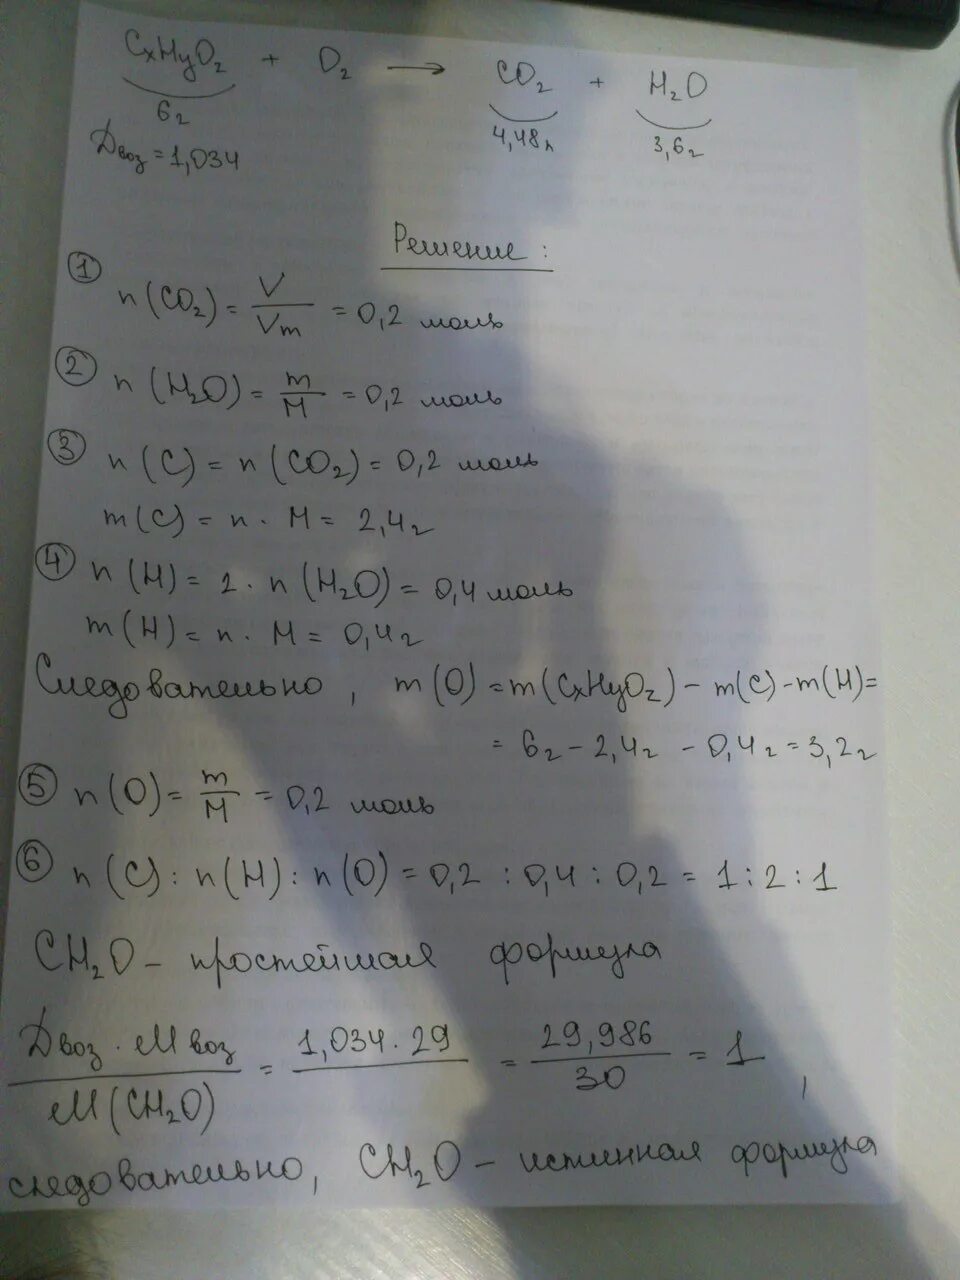 CxHyO₂ + O₂ → CO₂ + H₂O
6г 4,48л 3,6г
Dвоз = 1,034
Решение:
① n(CO₂) = V/Vm = 0,2 моль
② n(H₂O) = m/M = 0,2 моль
③ n(C) = n(CO₂) = 0,2 моль
m(C) = n · M = 2,4г
④ n(H) = 2 · n(H₂O) = 0,4 моль
m(H) = n · M = 0,4г
Следовательно, m(O) = m(CxHyO₂) - m(C) - m(H) =
= 6г - 2,4г - 0,4г = 3,2г
⑤ n(O) = m/M = 0,2 моль
⑥ n(C) : n(H) : n(O) = 0,2 : 0,4 : 0,2 = 1 : 2 : 1
CH₂O - простейшая формула
Dвоз · Mвоз / M(CH₂O) = 1,034 · 29 / = 29,986 / 30 = 1,
следовательно, CH₂O - истинная формула